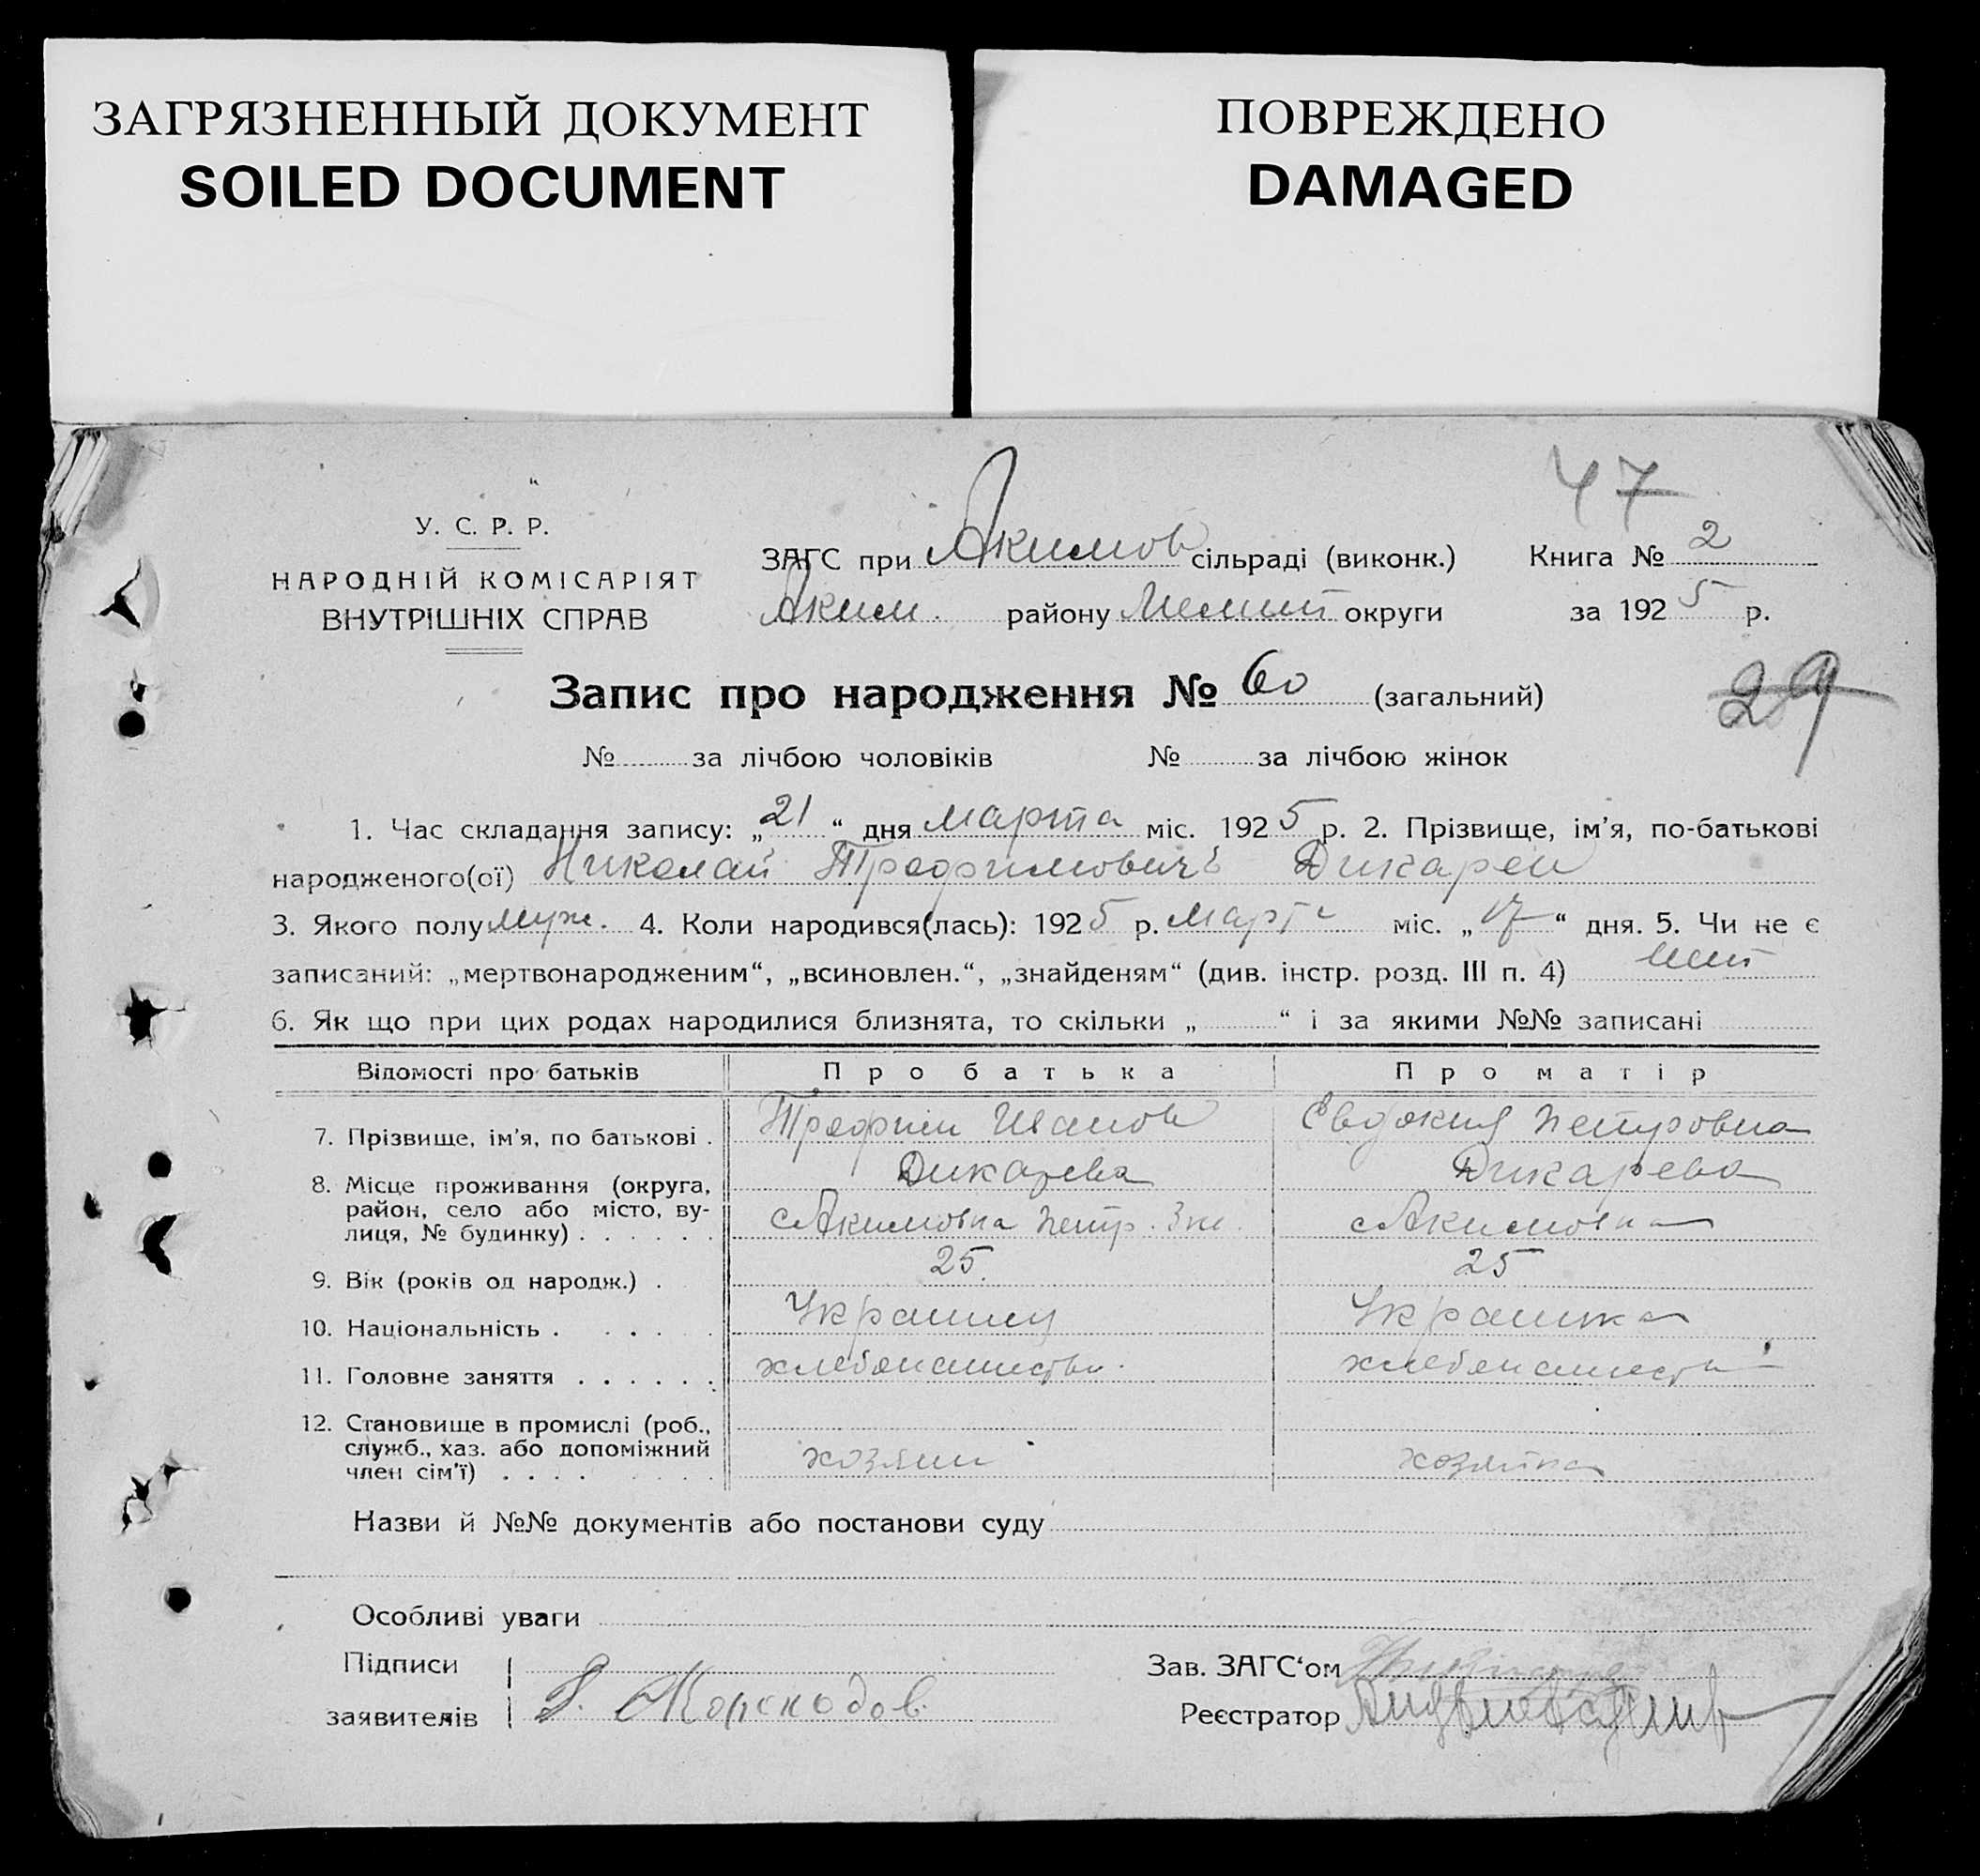 ЗАГРЯЗНЕННЫЙ ДОКУМЕНТ
SOILED DOCUMENT
ПОВРЕЖДЕНО
DAMAGED
47
У. С. Р. Р.
НАРОДНІЙ КОМІСАРІЯТ
ВНУТРІШНІХ СПРАВ
ЗАГС при Акимов сільраді (виконк.) Книга № 2
Аким. району Мелит округи за 1925 р.
Запис про народження № 60 (загальний)
29
№ за лічбою чоловіків № за лічбою жінок
1. Час складання запису: „21“ дня марта міс. 1925 р. 2. Прізвище, ім'я, по-батькові
народженого(ої) Николай Трофимович Дикарев
3. Якого полу муж. 4. Коли народився(лась): 1925 р. Марта міс. „17“ дня. 5. Чи не є
записаний: „мертвонародженим“, „всиновлен.“, „знайденям“ (див. інстр. розд. III п. 4)
6. Як що при цих родах народилися близнята, то скільки „ “ і за якими №№ записані
Відомості про батьків Про батька Про матір
7. Прізвище, ім'я, по батькові . Трофим Иванов Евдокия Петровна
Дикарева Дикарева
8. Місце проживання (округа,
район, село або місто, ву-
лиця, № будинку) . . . . . . с Акимовка Петр. с Акимовка
9. Вік (років од народж.) . 25 25
10. Національність . . . . . Украинец Украинка
11. Головне заняття . . . . . . хлебопашество хлебопашество
12. Становище в промислі (роб.,
служб., хаз. або допоміжний
член сім'ї) . . . . . . . . хозяин хозяйка
Назви й №№ документів або постанови суду
Особливі уваги
Підписи
заявителів
Зав. ЗАГС‘ом
Реєстратор